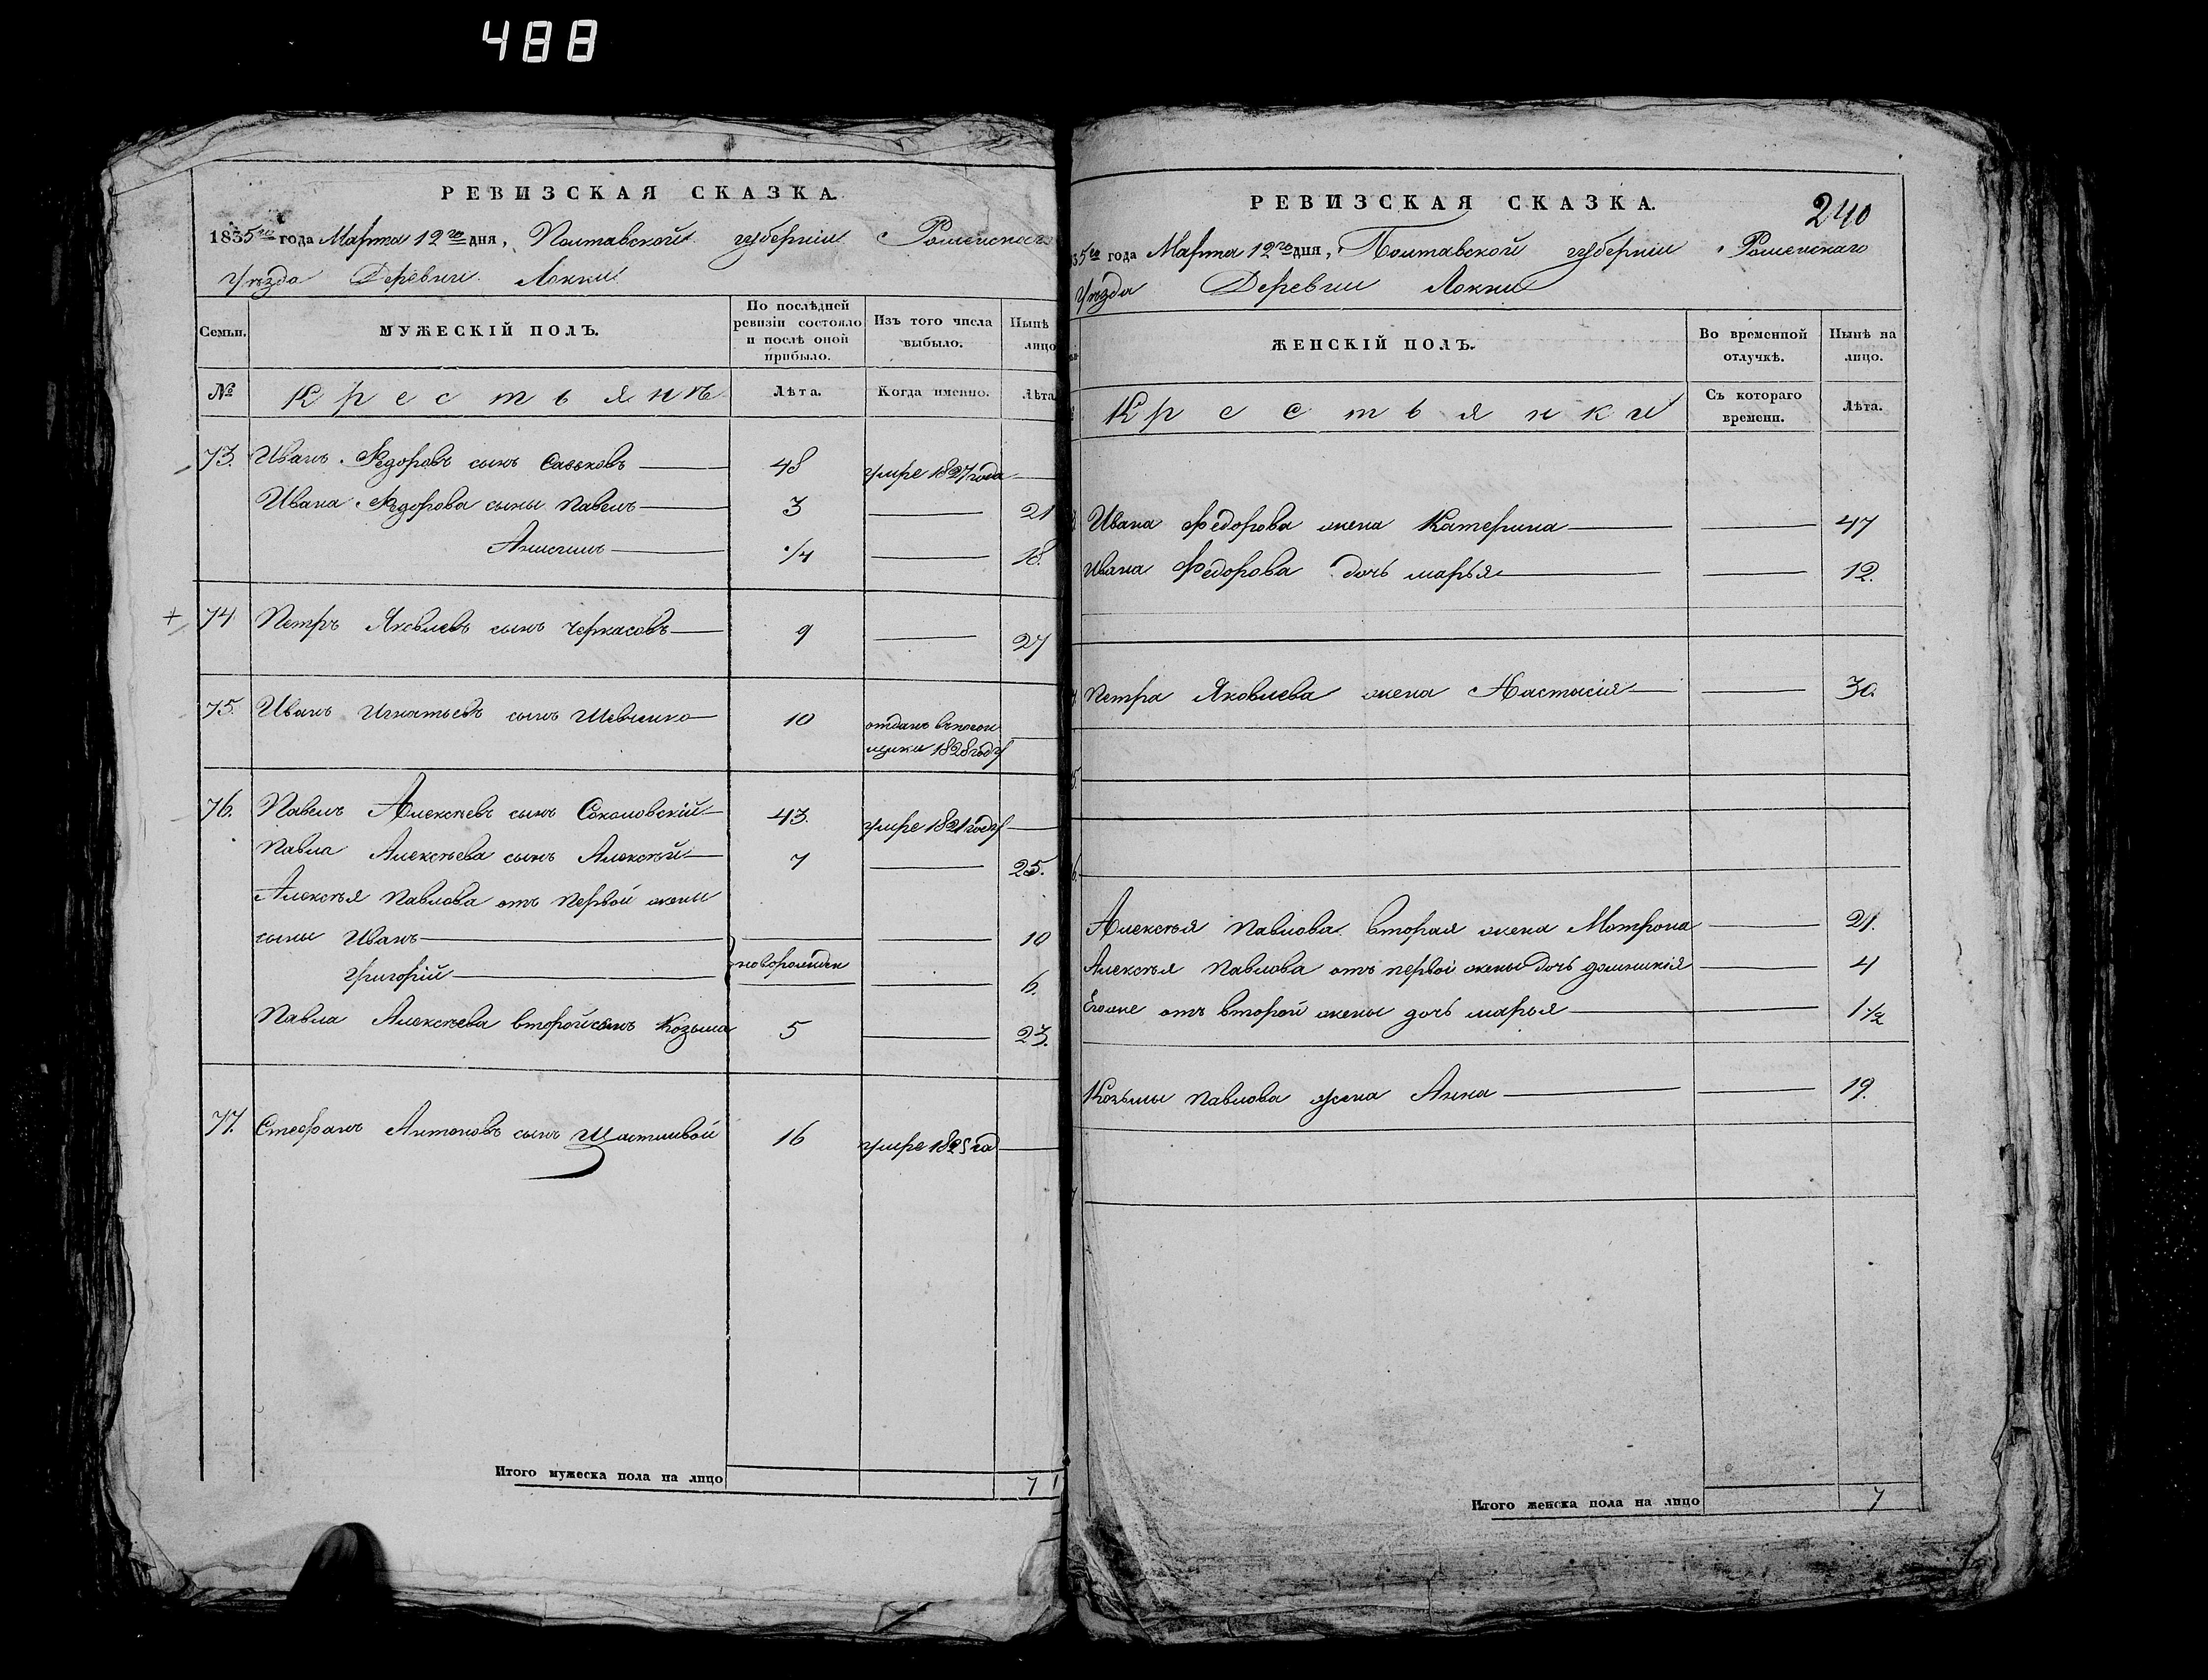 488
РЕВИЗСКАЯ СКАЗКА.
1835го года Марта 12го дня, Полтавской губерніи Роменскаго
Уѣзда Деревни Локни
Семьи. МУЖЕСКІЙ ПОЛЪ. По послѣдней ревизіи состояло и послѣ оной прибыло. Изъ того числа выбыло. Нынѣ лицо
№ Крестьянѣ Лѣта. Когда именно. Лѣта
73. Иванъ Федоровъ сынъ Савковъ 48 умре 1827 года
Ивана Федорова сыны Павелъ 3 21
1/4 18.
74 Петръ Яковлевъ сынъ Черкасовъ 9 27
75. Иванъ Игнатьевъ сынъ Шевченко 10 отданъ въ погон
щики 1828 году
76. Павелъ Алексѣевъ сынъ Соколовскій 43. умре 1821 году
Павла Алексѣева сынъ Алексѣй 7 25.
Алексѣя Павлова отъ первой жены
сыны Иванъ 10
Григорій новорожден 6.
Павла Алексѣева второй сынъ Козьма 5 23.
77. Стефанъ Антоновъ сынъ Щастливой 16 умре 1825 го
Итого мужеска пола на лицо 7
РЕВИЗСКАЯ СКАЗКА. 240
35го года Марта 12го дня, Полтавской губерніи Роменскаго
Уѣзда Деревни Локни
ЖЕНСКІЙ ПОЛЪ. Во временной отлучкѣ. Нынѣ на лицо.
Крестьянки Съ котораго времени. Лѣта.
Ивана Федорова жена Катерина 47
Ивана Федорова дочь марья 12.
Петра Яковлева жена Настасія 30.
Алексѣя Павлова вторая жена Мотрона 21.
Алексѣя Павлова отъ первой жены дочь домникія 4
Егоже отъ второй жены дочь марья 1 1/2
Козьмы Павлова жена Анна 19.
Итого женска пола на лицо 7